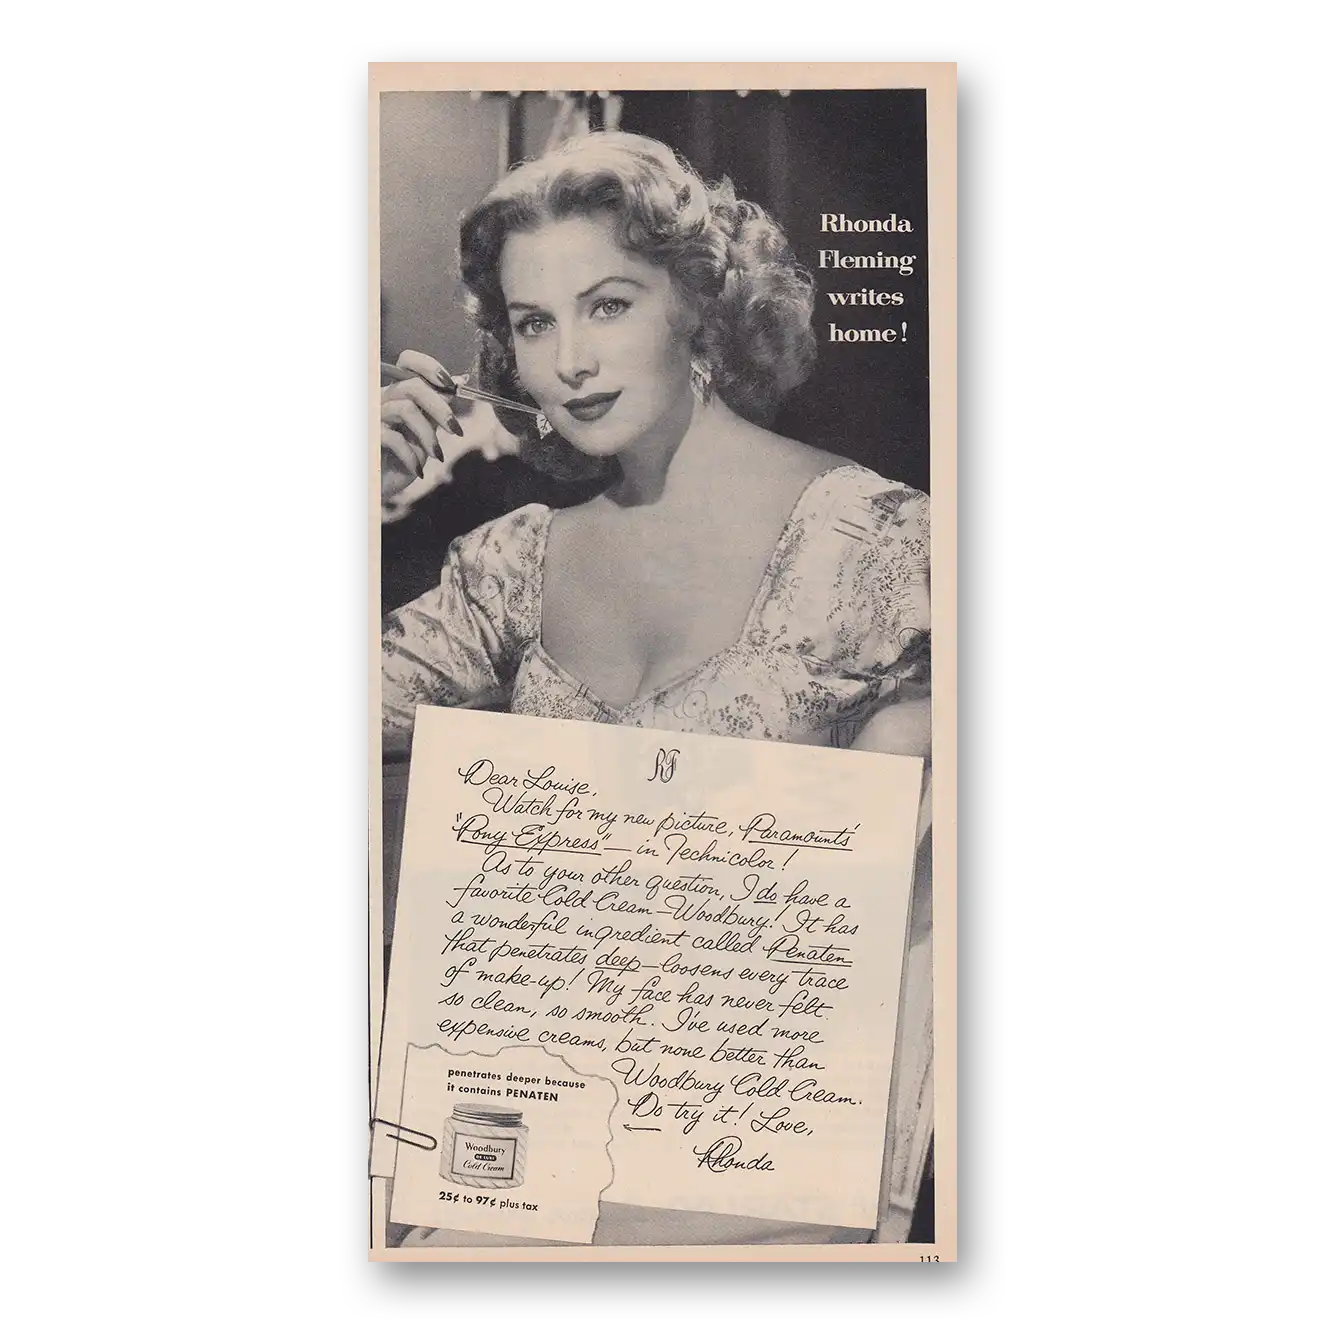 Rhonda
Fleming
writes
home!
RF
Dear Louise,
Watch for my new picture, Paramounts'
"Pony Express" — in Technicolor!
As to your other question, I do have a
favorite Cold Cream — Woodbury! It has
a wonderful ingredient called Penaten
that penetrates deep — loosens every trace
of make-up! My face has never felt
so clean, so smooth. I've used more
expensive creams, but none better than
Woodbury Cold Cream.
Do try it! Love,
Rhonda
penetrates deeper because
it contains PENATEN
Woodbury
DE LUXE
Cold Cream
25¢ to 97¢ plus tax
113